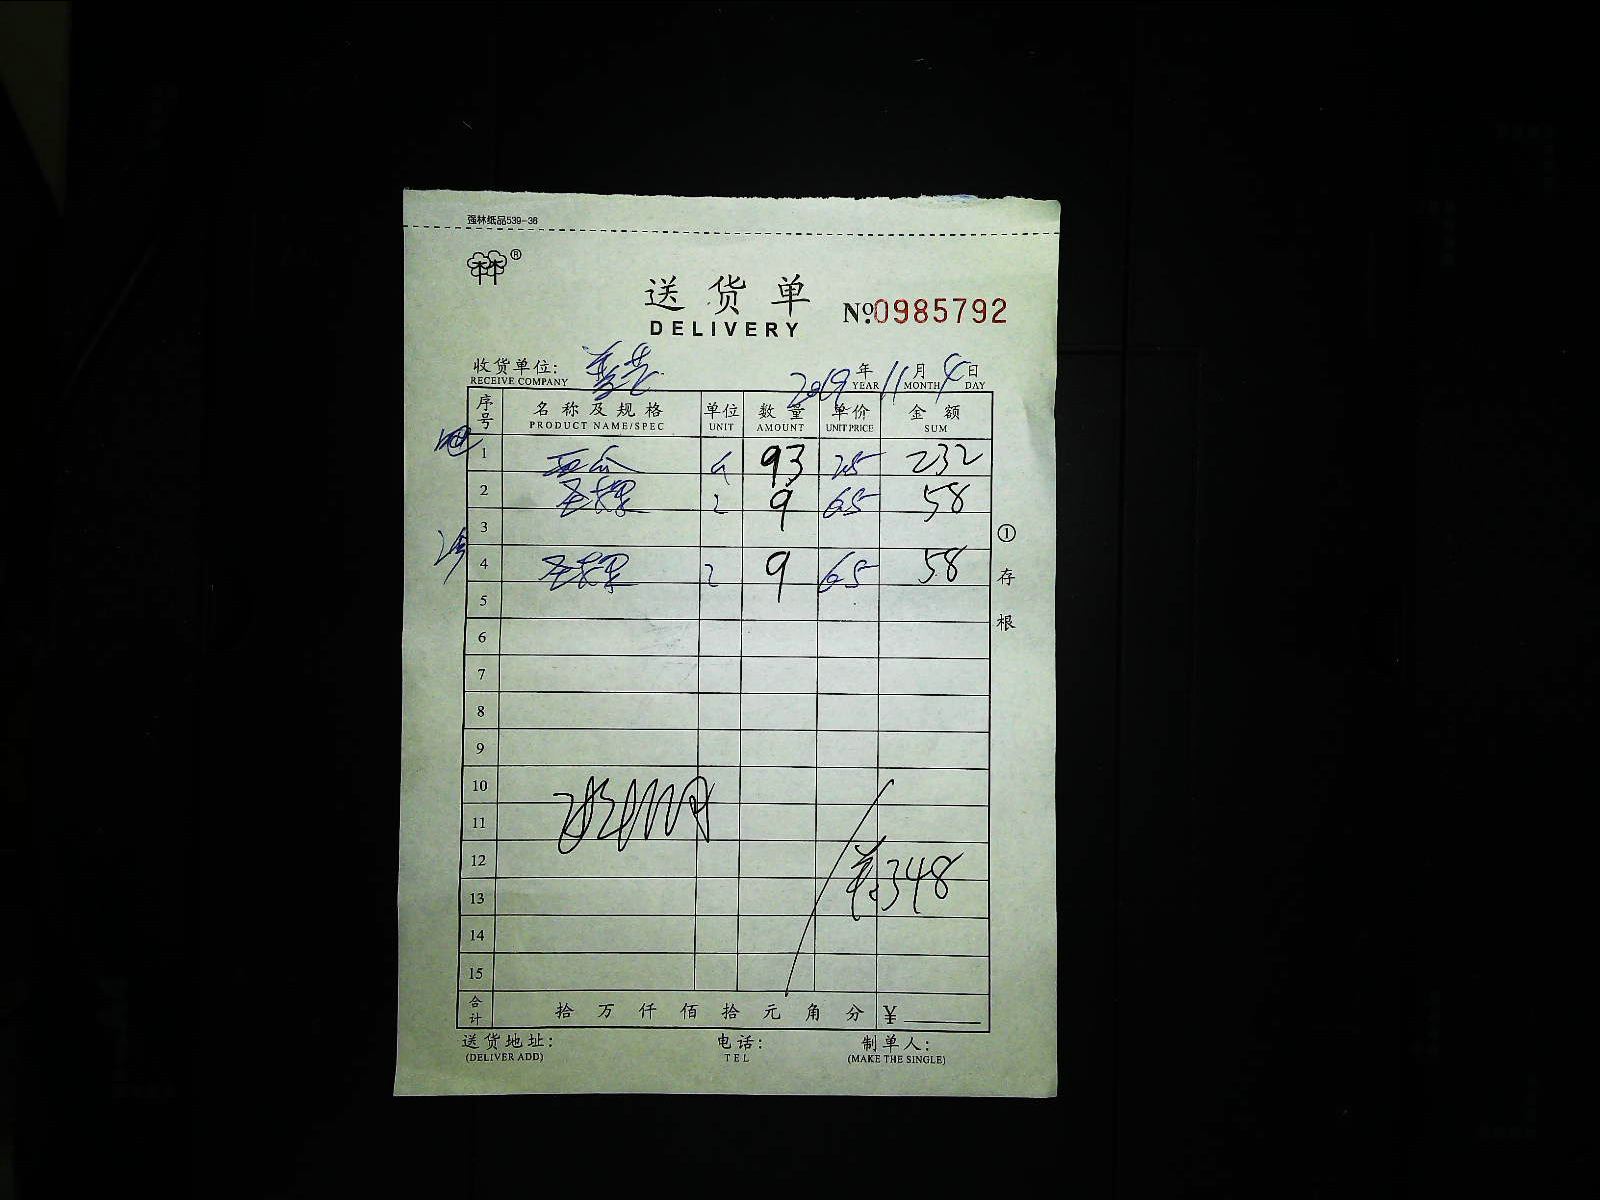 强林纸品539-36
林®
送货单
DELIVERY
№:0985792
收货单位:
RECEIVE COMPANY
2019年11月4日
YEAR MONTH DAY
序号 名称及规格 单位 数量 单价 金额
PRODUCT NAME/SPEC UNIT AMOUNT UNIT PRICE SUM
1 西瓜 4 93 25 232
2 圣女果 2 9 65 58
3
4 圣女果 2 9 65 58
5
6
7
8
9
10
11
12 348
13
14
15
合计 拾 万 仟 佰 拾 元 角 分 ¥
送货地址: 电话: 制单人:
(DELIVER ADD) TEL (MAKE THE SINGLE)
①存根